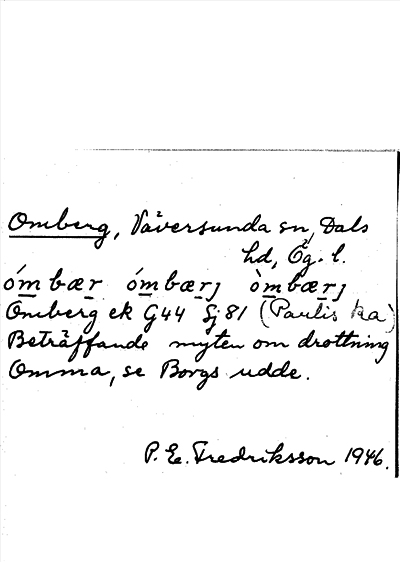 Omberg, Väversunda sn, Dals
hd, Ög. l.
ómbær ómbærj òmbærj
Omberg ek G44 Sj81 (Paulis ka)
Beträffande myten om drottning
Omma, se Borgs udde.
P. E. Fredriksson 1946.